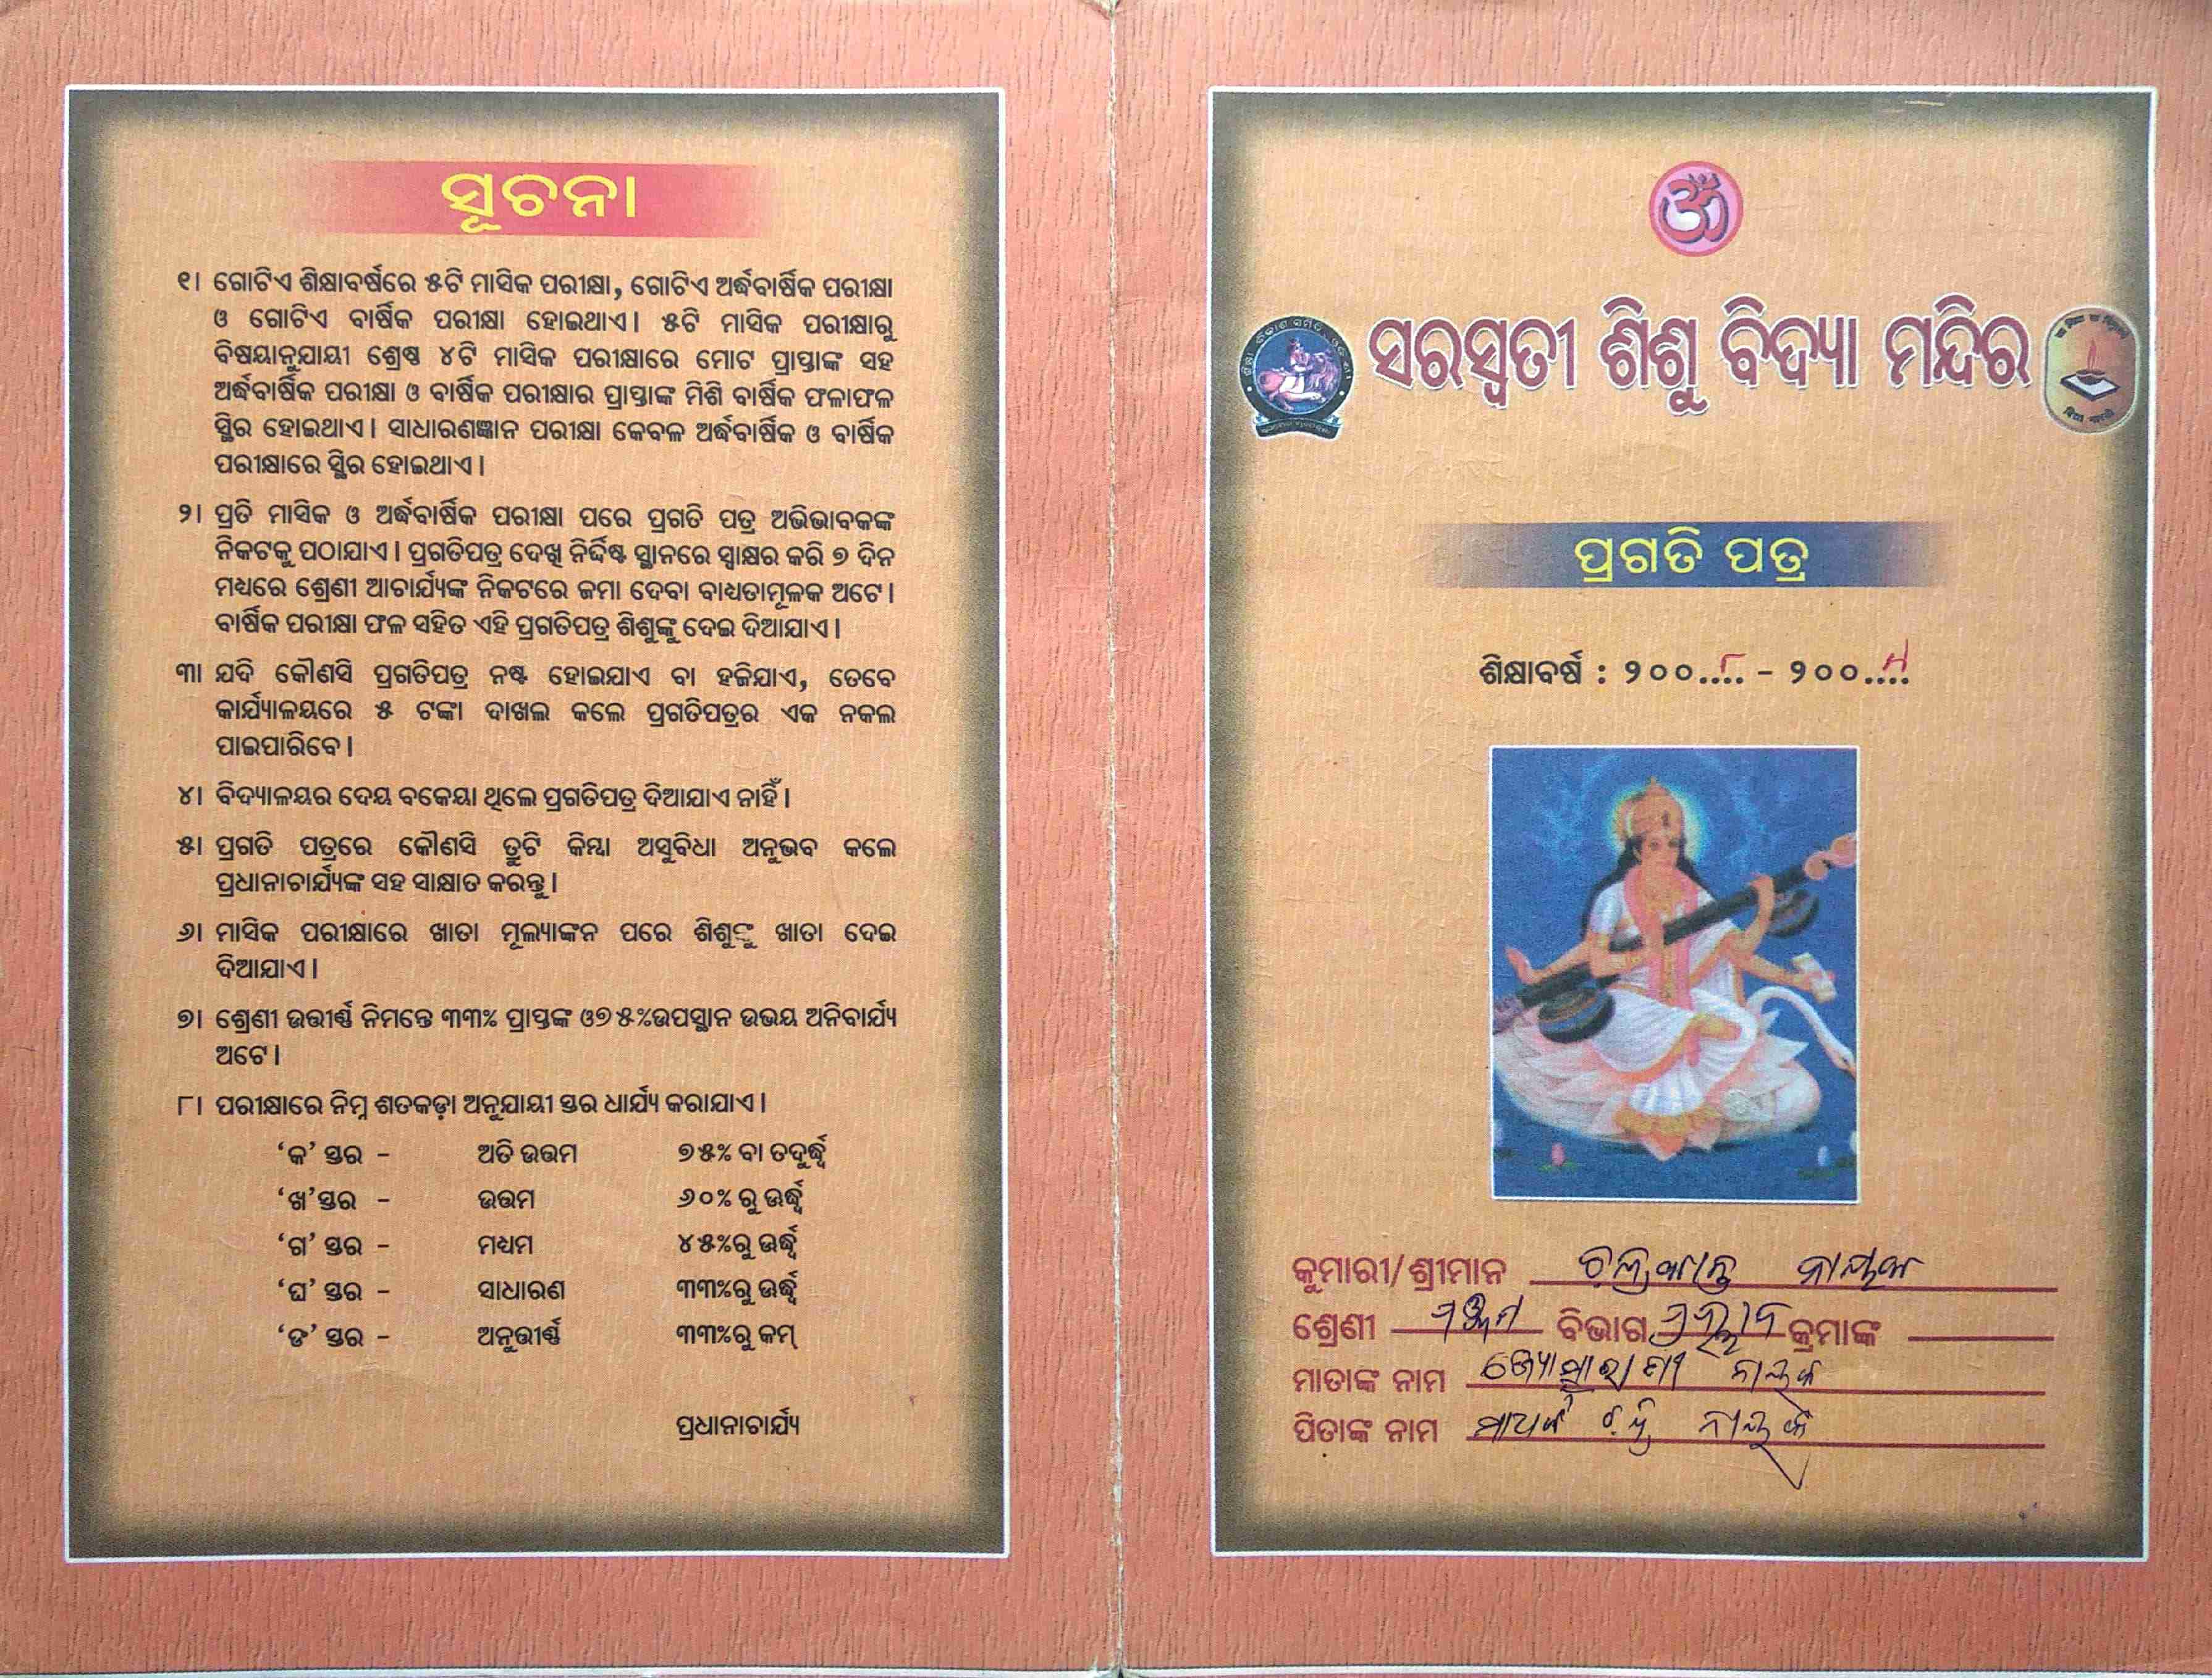 ସୂଚନା
୧। ଗୋଟିଏ ଶିକ୍ଷାବର୍ଷରେ ୫ଟି ମାସିକ ପରୀକ୍ଷା, ଗୋଟିଏ ଅର୍ଦ୍ଧବାର୍ଷିକ ପରୀକ୍ଷା
ଓ ଗୋଟିଏ ବାର୍ଷିକ ପରୀକ୍ଷା ହୋଇଥାଏ। ୫ଟି ମାସିକ ପରୀକ୍ଷାରୁ
ବିଷୟାନୁଯାୟୀ ଶ୍ରେଷ୍ଠ ୪ଟି ମାସିକ ପରୀକ୍ଷାରେ ମୋଟ ପ୍ରାପ୍ତାଙ୍କ ସହ
ଅର୍ଦ୍ଧବାର୍ଷିକ ପରୀକ୍ଷା ଓ ବାର୍ଷିକ ପରୀକ୍ଷାର ପ୍ରାପ୍ତାଙ୍କ ମିଶି ବାର୍ଷିକ ଫଳାଫଳ
ସ୍ଥିର ହୋଇଥାଏ। ସାଧାରଣଜ୍ଞାନ ପରୀକ୍ଷା କେବଳ ଅର୍ଦ୍ଧବାର୍ଷିକ ଓ ବାର୍ଷିକ
ପରୀକ୍ଷାରେ ସ୍ଥିର ହୋଇଥାଏ।
୨। ପ୍ରତି ମାସିକ ଓ ଅର୍ଦ୍ଧବାର୍ଷିକ ପରୀକ୍ଷା ପରେ ପ୍ରଗତି ପତ୍ର ଅଭିଭାବକଙ୍କ
ନିକଟକୁ ପଠାଯାଏ। ପ୍ରଗତିପତ୍ର ଦେଖି ନିର୍ଦ୍ଦିଷ୍ଟ ସ୍ଥାନରେ ସ୍ୱାକ୍ଷର କରି ୭ ଦିନ
ମଧ୍ୟରେ ଶ୍ରେଣୀ ଆଚାର୍ଯ୍ୟଙ୍କ ନିକଟରେ ଜମା ଦେବା ବାଧ୍ୟତାମୂଳକ ଅଟେ।
ବାର୍ଷିକ ପରୀକ୍ଷା ଫଳ ସହିତ ଏହି ପ୍ରଗତିପତ୍ର ଶିଶୁଙ୍କୁ ଦେଇ ଦିଆଯାଏ।
୩। ଯଦି କୌଣସି ପ୍ରଗତିପତ୍ର ନଷ୍ଟ ହୋଇଯାଏ ବା ହଜିଯାଏ, ତେବେ
କାର୍ଯ୍ୟାଳୟରେ ୫ ଟଙ୍କା ଦାଖଲ କଲେ ପ୍ରଗତିପତ୍ରର ଏକ ନକଲ
ପାଇପାରିବେ।
୪। ବିଦ୍ୟାଳୟର ଦେୟ ବକେୟା ଥିଲେ ପ୍ରଗତିପତ୍ର ଦିଆଯାଏ ନାହିଁ।
୫। ପ୍ରଗତି ପତ୍ରରେ କୌଣସି ତ୍ରୁଟି କିମ୍ବା ଅସୁବିଧା ଅନୁଭବ କଲେ
ପ୍ରଧାନାଚାର୍ଯ୍ୟଙ୍କ ସହ ସାକ୍ଷାତ କରନ୍ତୁ।
୬। ମାସିକ ପରୀକ୍ଷାରେ ଖାତା ମୂଲ୍ୟାଙ୍କନ ପରେ ଶିଶୁଙ୍କୁ ଖାତା ଦେଇ
ଦିଆଯାଏ।
୭। ଶ୍ରେଣୀ ଉତ୍ତୀର୍ଣ୍ଣ ନିମନ୍ତେ ୩୩% ପ୍ରାପ୍ତଙ୍କ ଓ୭୫%ଉପସ୍ଥାନ ଉଭୟ ଅନିବାର୍ଯ୍ୟ
ଅଟେ।
୮। ପରୀକ୍ଷାରେ ନିମ୍ନ ଶତକଡ଼ା ଅନୁଯାୟୀ ସ୍ତର ଧାର୍ଯ୍ୟ କରାଯାଏ।
‘କ’ ସ୍ତର – ଅତି ଉତ୍ତମ ୭୫% ବା ତଦୁର୍ଦ୍ଧ୍ୱ
‘ଖ’ସ୍ତର – ଉତ୍ତମ ୬୦% ରୁ ଊର୍ଦ୍ଧ୍ୱ
‘ଗ’ ସ୍ତର – ମଧ୍ୟମ ୪୫%ରୁ ଊର୍ଦ୍ଧ୍ୱ
‘ଘ’ ସ୍ତର – ସାଧାରଣ ୩୩%ରୁ ଊର୍ଦ୍ଧ୍ୱ
‘ଙ’ ସ୍ତର – ଅନୁତ୍ତୀର୍ଣ୍ଣ ୩୩%ରୁ କମ୍
ପ୍ରଧାନାଚାର୍ଯ୍ୟ
ॐ
ସରସ୍ୱତୀ ଶିଶୁ ବିଦ୍ୟା ମନ୍ଦିର
ପ୍ରଗତି ପତ୍ର
ଶିକ୍ଷାବର୍ଷ : ୨୦୦୮ – ୨୦୦୯
କୁମାରୀ/ଶ୍ରୀମାନ ଚନ୍ଦ୍ରକାନ୍ତ ନାୟକ
ଶ୍ରେଣୀ ବିଭାଗ କ୍ରମାଙ୍କ
ମାତାଙ୍କ ନାମ ଜ୍ୟୋତ୍ସ୍ନାରାଣୀ ନାୟକ
ପିତାଙ୍କ ନାମ ନାୟକ